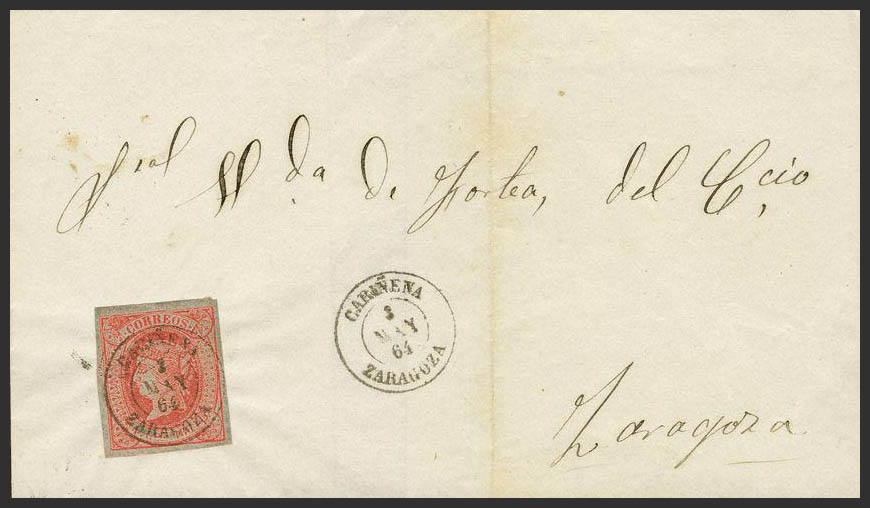 S.ral V.da de Fortea, del C.cio
CORREOS
CARIÑENA
3
MAY
64
ZARAGOZA
CARIÑENA
3
MAY
64
ZARAGOZA
Zaragoza